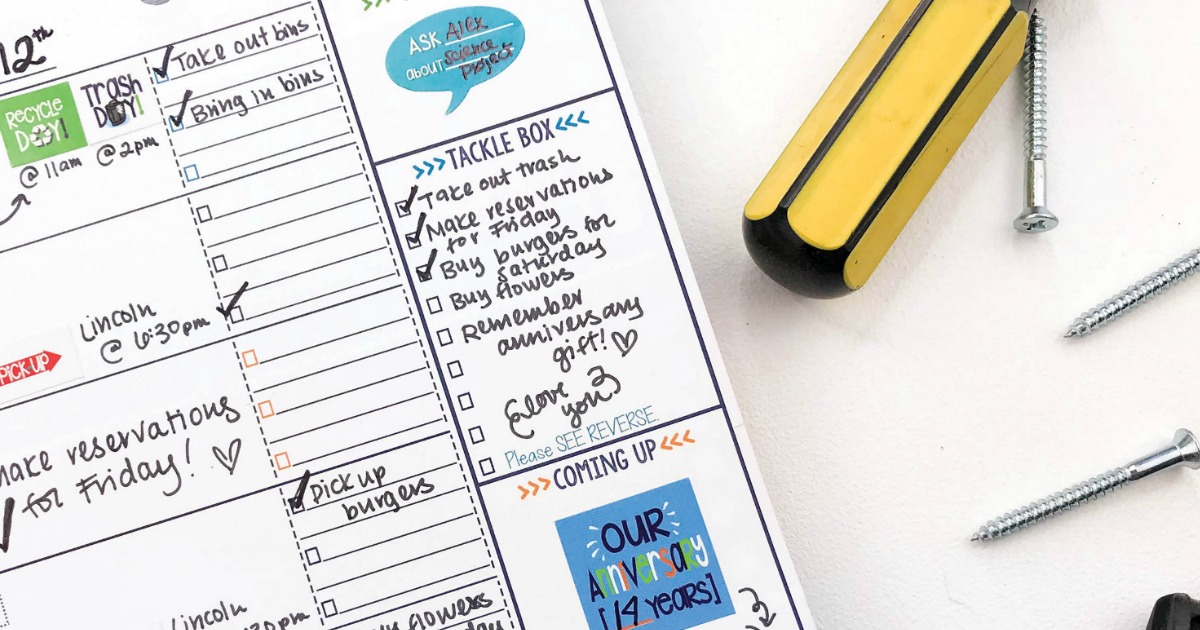 12th
RECYCLE
DAY!
@ 11am
TRASH
DAY!
@ 2pm
Take out bins
Bring in bins
Lincoln
@ 6:30pm
PICK-UP
make reservations
for Friday! ♡
Pick up
burgers
Lincoln
30pm
Buy flowers
ASK Alex
ABOUT Science
Project
>>> TACKLE BOX <<<
Take out trash
Make reservations
for Friday
Buy burgers for
Saturday
Buy flowers
Remember
anniversary
gift! ♡
love
you
Please SEE REVERSE.
>>> COMING UP <<<
OUR
ANNIVERSARY
[14 YEARS]